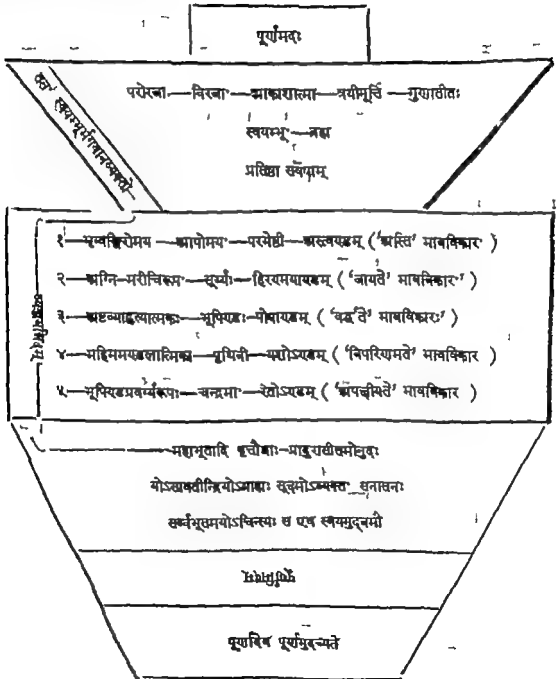 पूर्णमदः
ततः स्वयम्भूर्भगवानव्यक्तो
परोरजा—विरजाः—आकाशात्मा—त्रयीमूर्त्ति—गुणातीतः
स्वयम्भूः—ब्रह्म
प्रतिष्ठा सर्वेषाम्
व्यञ्जयन्निदम्
१—भृग्वङ्गिरोमय—आपोमय—परमेष्ठी—अस्त्वण्डम् ('अस्ति' भावविकारः)
२—अग्नि-मरीचिरूपः—सूर्य्यः—हिरण्मयाण्डम् ('जायते' भावविकारः)
३—अष्टव्याहृत्यात्मकः—भूपिण्डः—पोषाण्डम् ('वर्द्धते' भावविकारः)
४—महिममण्डलात्मिका—पृथिवी—यशोऽण्डम् ('विपरिणमते' भावविकार)
५—भूपिण्डप्रवर्ग्यरूपः—चन्द्रमा—रेतोऽण्डम् ('अपक्षीयते' भावविकार)
—महाभूतादि वृत्तौजाः—प्रादुरासीत्तमोनुदः
योऽसावतीन्द्रियोऽग्राह्यः सूक्ष्मोऽव्यक्तः सनातनः
सर्व्वभूतमयोऽचिन्त्यः स एष स्वयमुद्बभौ
पूर्णमिदम्
पूर्णादिव पूर्णमुदच्यते